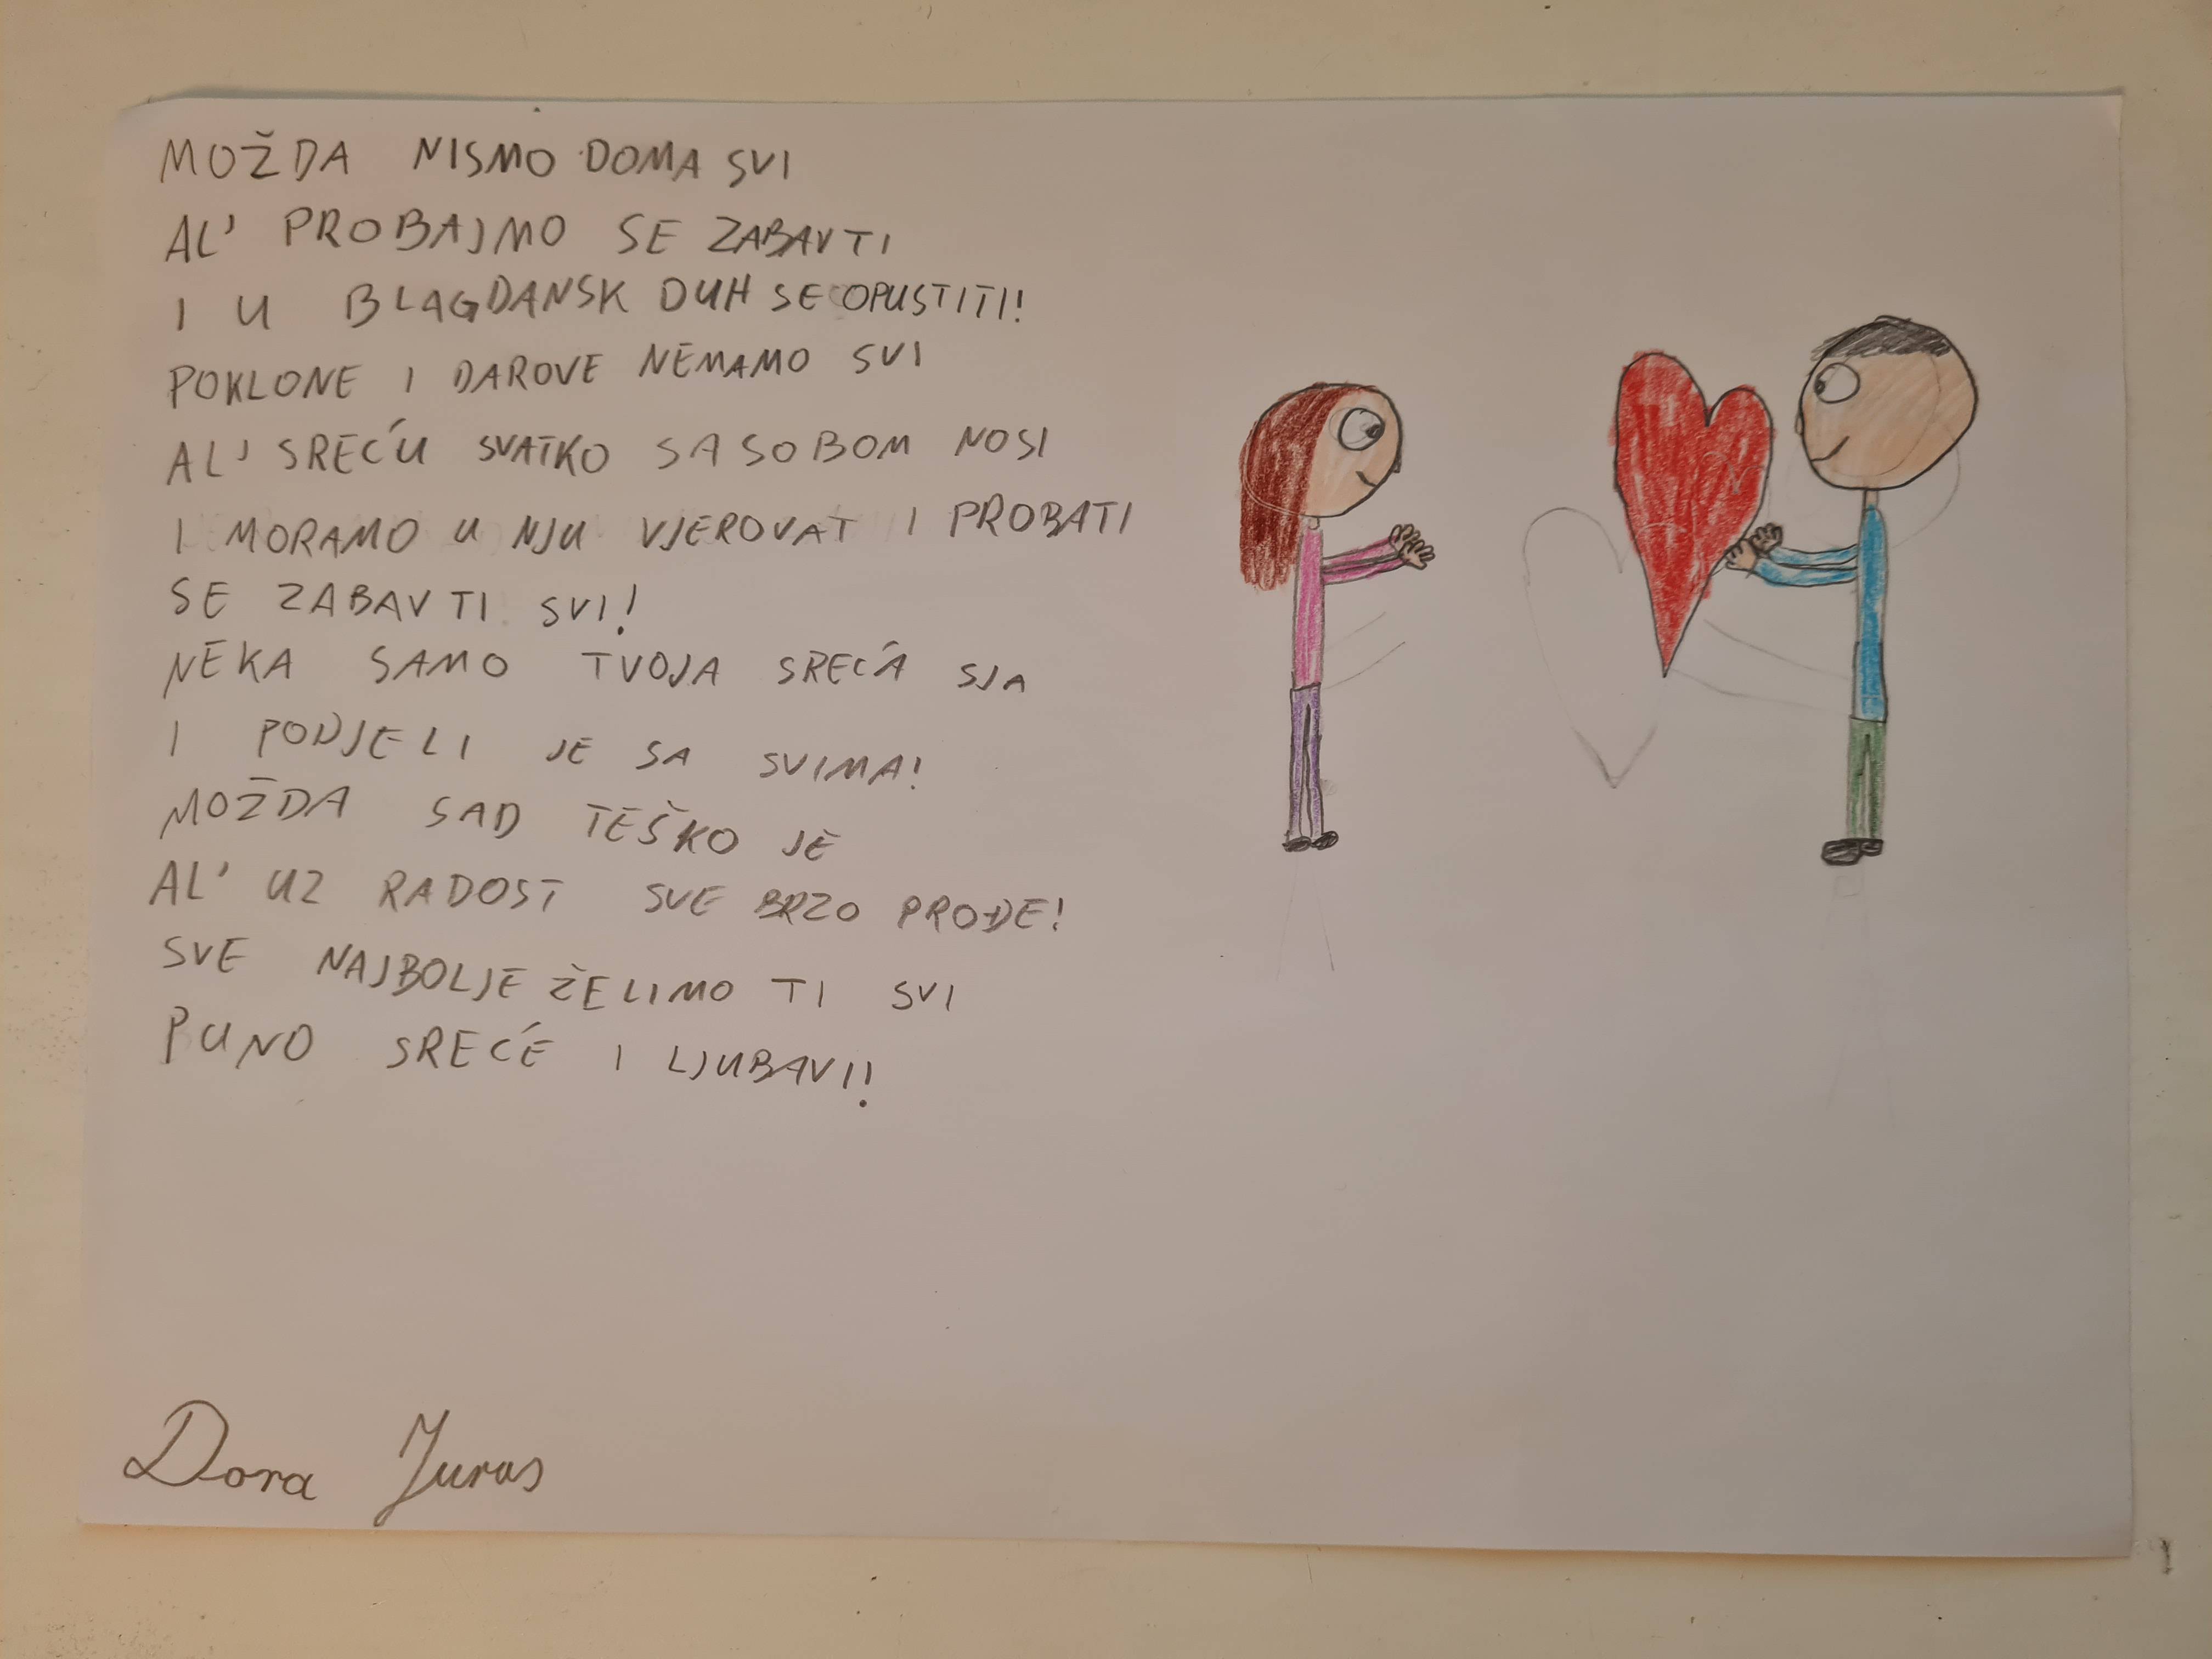 MOŽDA NISMO DOMA SVI
AL' PROBAJMO SE ZABAVTI
I U BLAGDANSK DUH SE OPUSTITI!
POKLONE I DAROVE NEMAMO SVI
AL' SREĆU SVATKO SA SOBOM NOSI
I MORAMO U NJU VJEROVAT I PROBATI
SE ZABAVTI SVI!
NEKA SAMO TVOJA SREĆA SJA
I PODJELI JE SA SVIMA!
MOŽDA SAD TEŠKO JE
AL' UZ RADOST SVE BRZO PROĐE!
SVE NAJBOLJE ŽELIMO TI SVI
PUNO SREĆE I LJUBAVI!
Dora Juras